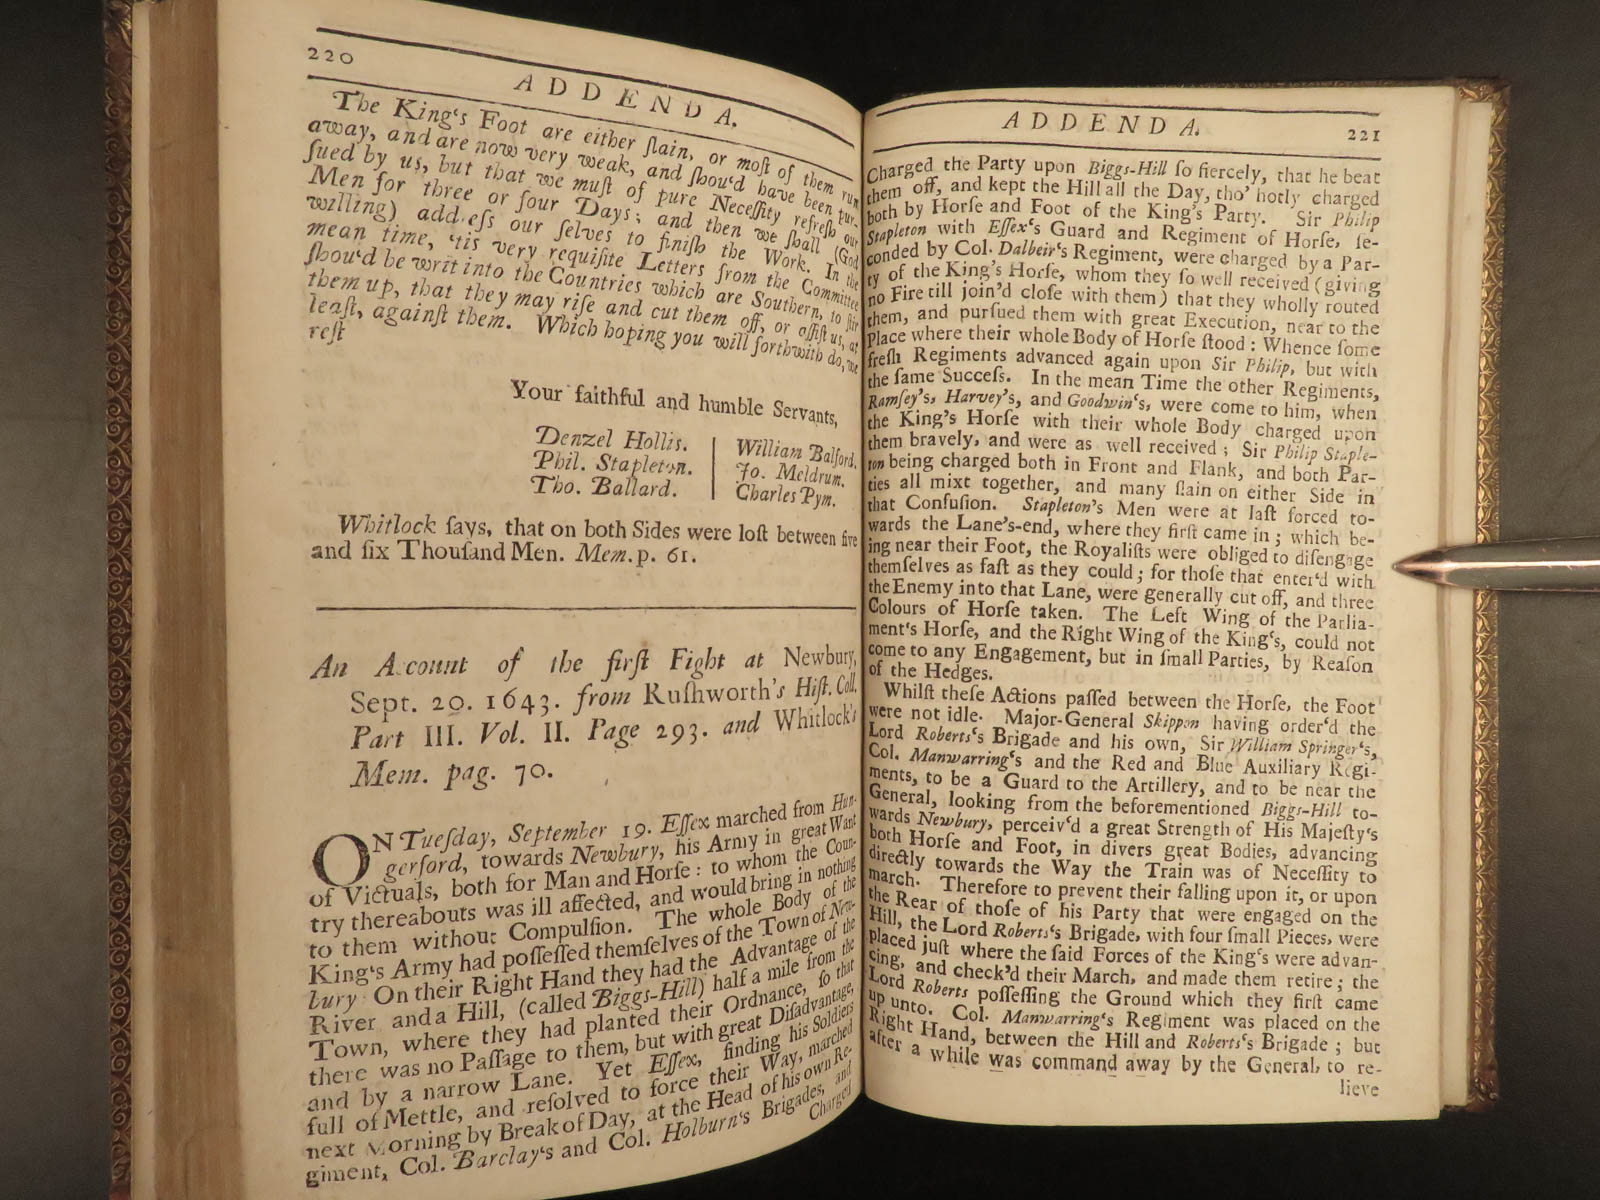 220
ADDENDA.
The King's Foot are either ſlain, or moſt of them run
away, and are now very weak, and ſhou'd have been pur-
ſued by us, but that we muſt of pure Neceſſity refreſh our
Men for three or four Days; and then we ſhall (God
willing) addreſs our ſelves to finiſh the Work. In the
mean time, 'tis very requiſite Letters from the Committee
ſhou'd be writ into the Countries which are Southern, to ſtir
them up, that they may riſe and cut them off, or aſſiſt us, at
leaſt, againſt them. Which hoping you will forthwith do, we
reſt
Your faithful and humble Servants,
Denzel Hollis.
Phil. Stapleton.
Tho. Ballard.
William Balford.
Jo. Meldrum.
Charles Pym.
Whitlock ſays, that on both Sides were loſt between five
and ſix Thouſand Men. Mem. p. 61.
An Account of the firſt Fight at Newbury,
Sept. 20. 1643. from Ruſhworth's Hiſt. Coll.
Part III. Vol. II. Page 293. and Whitlock's
Mem. pag. 70.
ON Tueſday, September 19. Eſſex marched from Hun-
gerford, towards Newbury, his Army in great Want
of Victuals, both for Man and Horſe: to whom the Coun-
try thereabouts was ill affected, and would bring in nothing
to them without Compulſion. The whole Body of the
King's Army had poſſeſſed themſelves of the Town of New-
bury On their Right Hand they had the Advantage of the
River and a Hill, (called Biggs-Hill) half a mile from the
Town, where they had planted their Ordnance, ſo that
there was no Paſſage to them, but with great Diſadvantage,
and by a narrow Lane. Yet Eſſex, finding his Soldiers
full of Mettle, and reſolved to force their Way, marched
next Morning by Break of Day, at the Head of his own Re-
giment, Col. Barclay's and Col. Holburn's Brigades, and
Charged
ADDENDA.
221
Charged the Party upon Biggs-Hill ſo fiercely, that he beat
them off, and kept the Hill all the Day, tho' hotly charged
both by Horſe and Foot of the King's Party. Sir Philip
Stapleton with Eſſex's Guard and Regiment of Horſe, ſe-
conded by Col. Dalbeir's Regiment, were charged by a Par-
ty of the King's Horſe, whom they ſo well received (giving
no Fire till join'd cloſe with them) that they wholly routed
them, and purſued them with great Execution, near to the
Place where their whole Body of Horſe ſtood: Whence ſome
freſh Regiments advanced again upon Sir Philip, but with
the ſame Succeſs. In the mean Time the other Regiments,
Ramſey's, Harvey's, and Goodwin's, were come to him, when
the King's Horſe with their whole Body charged upon
them bravely, and were as well received; Sir Philip Staple-
ton being charged both in Front and Flank, and both Par-
ties all mixt together, and many ſlain on either Side in
that Confuſion. Stapleton's Men were at laſt forced to-
wards the Lane's-end, where they firſt came in; which be-
ing near their Foot, the Royaliſts were obliged to diſengage
themſelves as faſt as they could; for thoſe that enter'd with
the Enemy into that Lane, were generally cut off, and three
Colours of Horſe taken. The Left Wing of the Parlia-
ment's Horſe, and the Right Wing of the King's, could not
come to any Engagement, but in ſmall Parties, by Reaſon
of the Hedges.
Whilſt theſe Actions paſſed between the Horſe, the Foot
were not idle. Major-General Skippon having order'd the
Lord Roberts's Brigade and his own, Sir William Springer's,
Col. Manwarring's and the Red and Blue Auxiliary Regi-
ments, to be a Guard to the Artillery, and to be near the
General, looking from the beforementioned Biggs-Hill to-
wards Newbury, perceiv'd a great Strength of His Majeſty's
both Horſe and Foot, in divers great Bodies, advancing
directly towards the Way the Train was of Neceſſity to
march. Therefore to prevent their falling upon it, or upon
the Rear of thoſe of his Party that were engaged on the
Hill, the Lord Roberts's Brigade, with four ſmall Pieces, were
placed juſt where the ſaid Forces of the King's were advan-
cing, and check'd their March, and made them retire; the
Lord Roberts poſſeſſing the Ground which they firſt came
up unto. Col. Manwarring's Regiment was placed on the
Right Hand, between the Hill and Roberts's Brigade; but
after a while was command away by the General, to re-
lieve